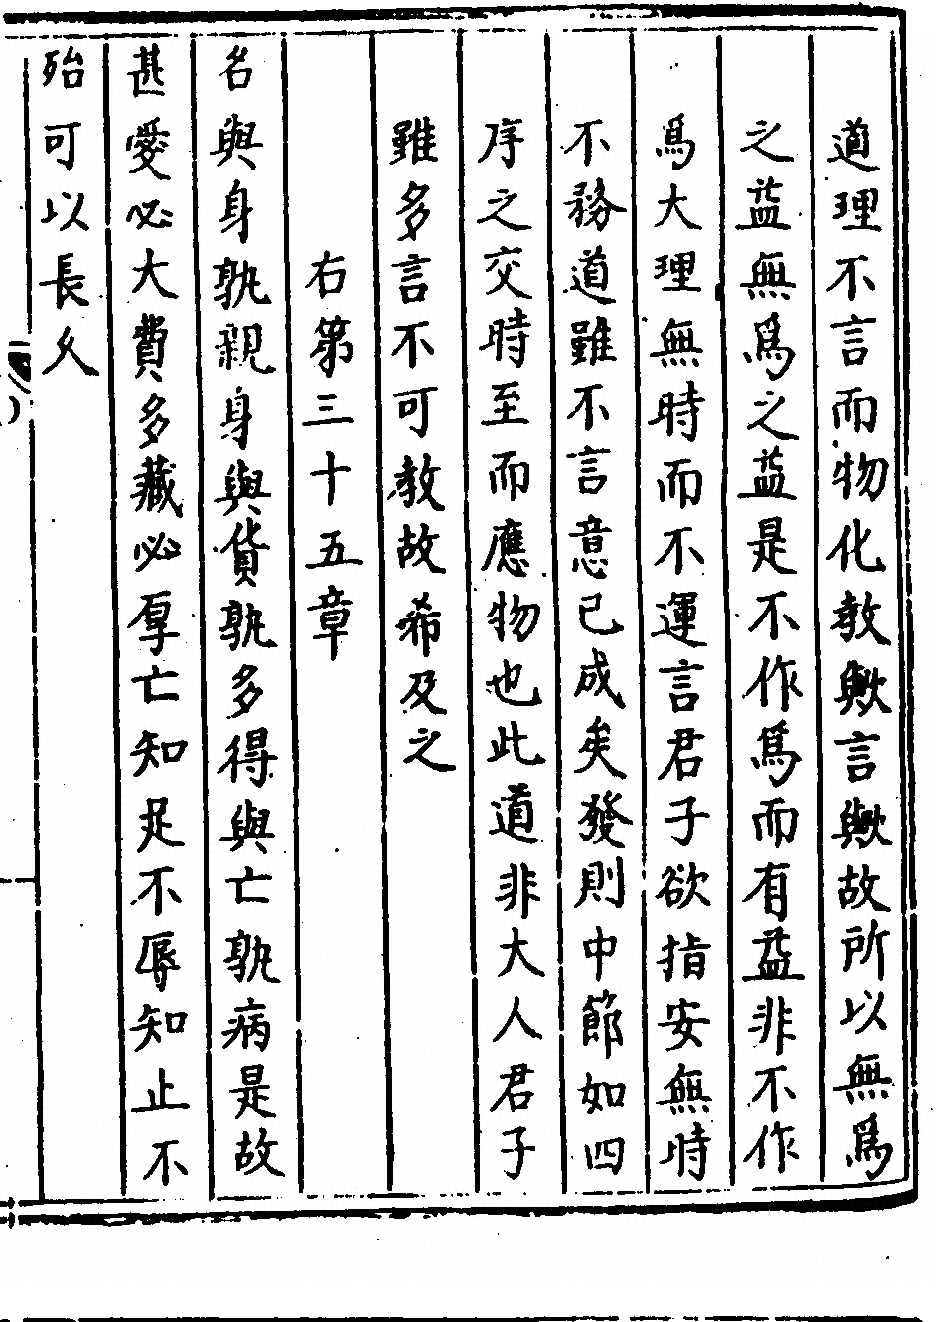 道理不言而物化教歟言歟故所以無爲
之益無爲之益是不作爲而有益非不作
爲大理無時而不運言君子欲指安無時
不務道雖不言意已成矣發則中節如四
序之交時至而應物也此道非大人君子
雖多言不可教故希及之
右第三十五章
名與身孰親身與貨孰多得與亡孰病是故
甚愛必大費多藏必厚亡知足不辱知止不
殆可以長久